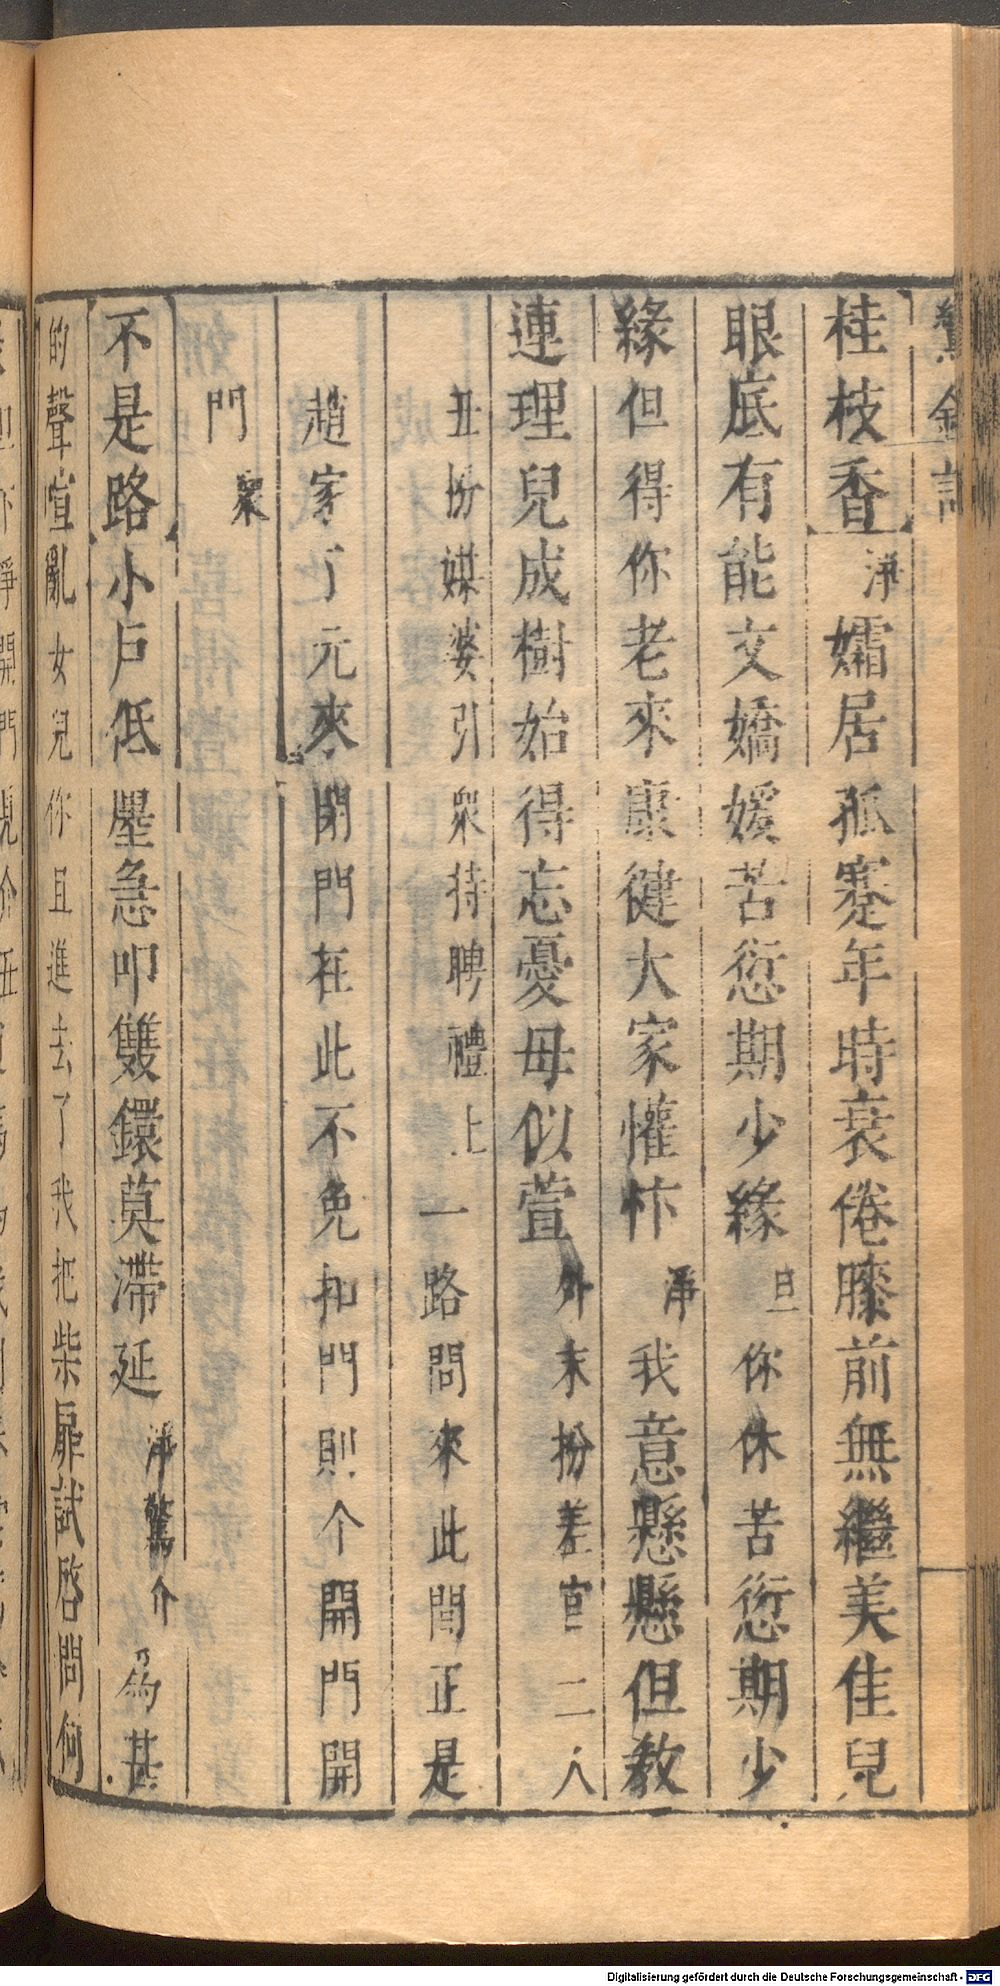 鸞金記
桂枝香淨孀居孤蹇年時衰倦膝前無繼美佳兒
眼底有能文嬌媛苦愆期少緣旦你休苦愆期少
緣但得你老來康健大家懽忭淨我意懸懸但教
連理兒成樹始得忘憂毋似萱外末扮差官二人
丑扮媒婆引衆持聘禮上一路問來此間正是
趙家了元來閉門在此不免扣門則个開門開
門衆
不是路小戶低壆急叩雙鐶莫滯延淨驚介為甚
的聲喧亂女兒你且進去了我把柴扉試啓問何
Digitalisierung gefördert durch die Deutsche Forschungsgemeinschaft - DFG